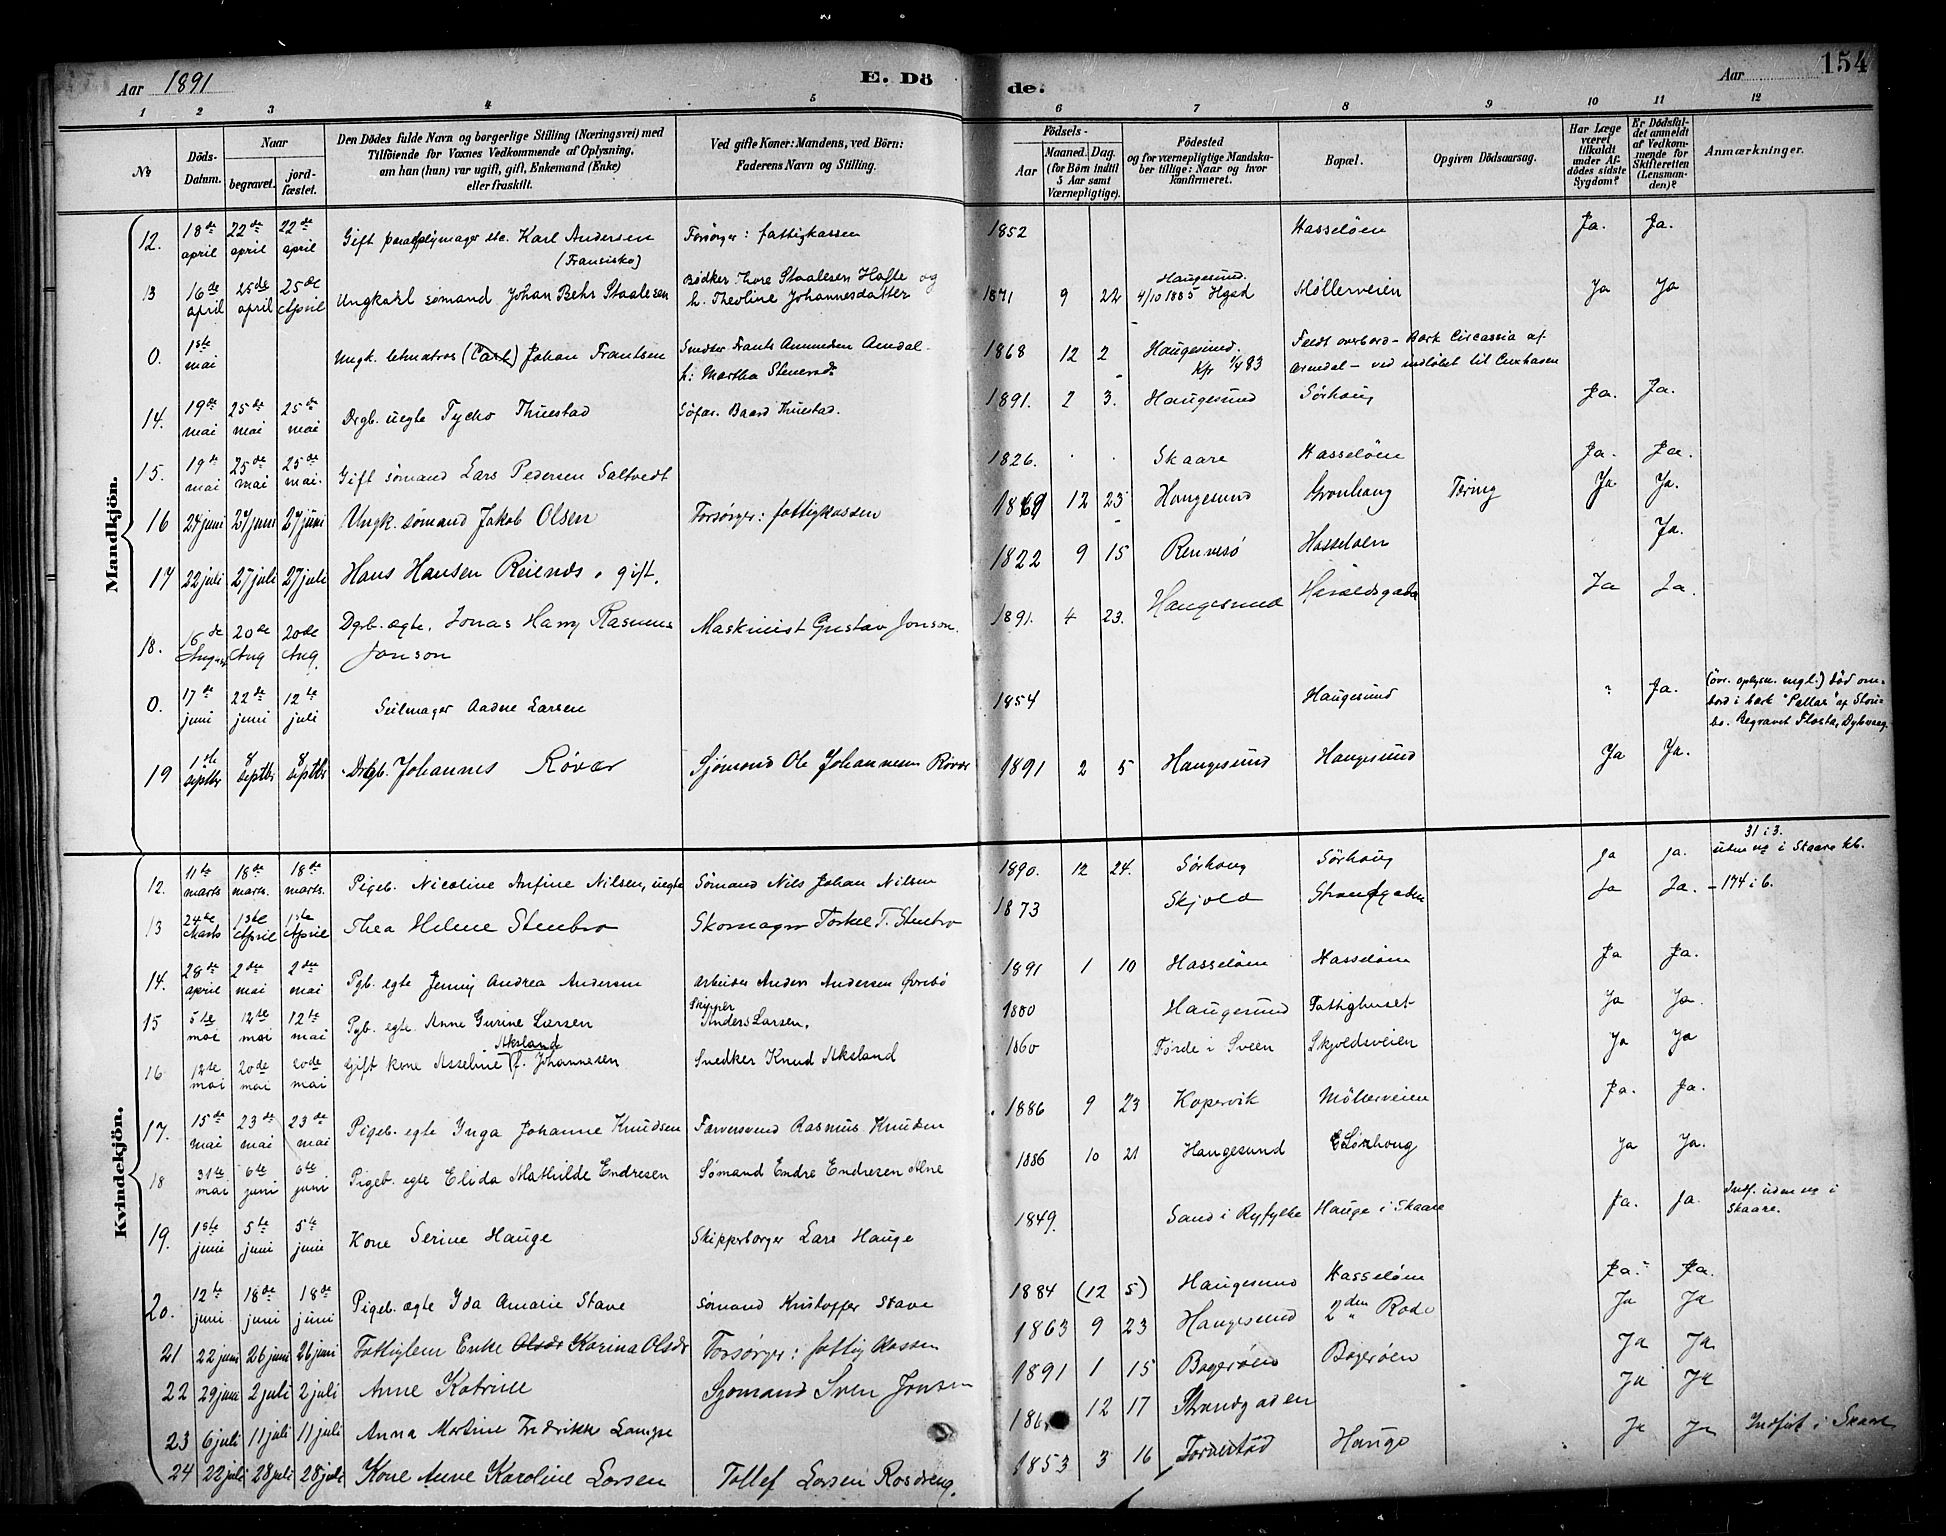 Aar 1891 E. Dö de. Aar 154
1 2 3 4 5 6 7 8 9 10 11 12
No Döds-Datum. Naar begravet. jord-fæstet. Den Dödes fulde Navn og borgerlige Stilling (Næringsvei) med Tilföiende for Voxnes Vedkommende af Oplysning, om han (hun) var ugift, gift, Enkemand (Enke) eller fraskilt. Ved gifte Koner: Mandens, ved Börn: Faderens Navn og Stilling. Födsels- Aar Maaned. Dag. (for Börn indtil 5 Aar samt Værnepligtige). Födested og for værnepligtige Mandskaber tillige: Naar og hvor konfirmeret. Bopæl. Opgiven Dödsaarsag. Har Læge været tilkaldt under Afdödes sidste Sygdom? Er Dödsfaldet anmeldt af Vedkommende for Skifteretten (Lensmanden)? Anmærkninger.
Mandkjön.
12. 18de april 22de april 22de april Gift paraplymager etc. Karl Andersen (Fransisko) Forsörger: fattigkassen 1852 Hasseløen Ja. Ja.
13 16de april 25de april 25de April Ungkarl sømand Johan Behr Staalesen Bødker Thore Staalesen Hafte og h. Theoline Johannesdatter 1871 9 22 Haugesund. 4/10 1885 Hgsd Møllerveien Ja Ja
0. 1ste mai Ungk. letmatros (Carl) Johan Frantsen Smdsv. Frants Amundsen Arndal h: Martha Stenersd. 1868 12 2 Haugesund. Kfr 1/4 83 Faldt overbord – Bark Circassia af Arendal – ved indløbet til Cuxhaven
14. 19de mai 25de mai 25de mai Drgb. uegte Tycho Thuestad Søfar. Baard Thuestad. 1891. 2 3. Haugesund Sørhaug Ja. Ja.
15. 19de mai 25de mai 25de mai. Gift sømand Lars Pedersen Saltvedt 1826. Skaare Hasseløen Ja. Ja.
16 24 juni 27 juni 27 juni Ungk. sømand Jakob Olsen Forsørger: fattigkassen 1869 12 23 Haugesund Grønhaug Tæring Ja Ja.
17 22 juli 27 juli 27 juli Hans Hansen Reiends, gift. 1822 9 15 Rennesø Hasseløen Ja.
18. 16de August 20de Aug 20de Aug. Dgb. ægte. Jonas Harry Rasmus Jonson Maskinist Gustav Jonson. 1891. 4 23. Haugesund Haraldsgaden Ja Ja.
0. 17de juni 22de juni 12te juli Seilmager Aadne Larsen 1854 Haugesund Ja. (øvr. oplysn. mgl.) død ombord i bark "Pallas" af Begravet Flosta, Dybvaag.
19 1ste septbr 8 septbr 8 septbr Drgb. Johannes Røvær Sjømand Ole Johannesen Røvær 1891 2 5 Haugesund Haugesund Ja Ja.
Kvindekjön.
12. 11te marts 18de marts. 18de marts. Pigeb. Nicoline Anfine Nilsen, uegte Sømand Nils Johan Nilsen 1890. 12 24. Sørhaug Sørhaug Ja Ja. 31 i 3. uden no i Skaare kb.
13 24te Marts 1ste April 1ste April Thea Helene Stenbro Skomager Torkel T. Stenbro 1873 Skjold Strandgaden Ja Ja. – 174 i 6.
14. 28de april 2den mai 2den mai Pgb. egte Jenny Andrea Andersen arbeider Anders Andersen Øvrebø 1891 1 10 Hasseløen Hasseløen Ja Ja.
15 5te mai 12te mai 12te mai Pgb. egte Anne Gurine Larsen Skipper Anders Larsen. 1880 Haugesund Fattighuset Ja Ja.
16 12te mai 20de mai 20de mai Gift kone Asseline Aksland f. Johannesen Snedker Knud Aksland 1860 Førde i Sveen Skjoldsveien Ja Ja
17. 15de mai 23de mai 23de mai Pigeb. egte Inga Johanne Knudsen Farversvend Rasmus Knudsen 1886 9 23 Kopervik Møllerveien Ja. Ja.
18 31te mai 6te juni 6te juni Pigeb. egte Elida Mathilde Endresen Sømand Endre Endresen Alne 1886 10 21 Haugesund Sørhaug Ja Ja.
19. 1ste juni 5te juni 5te juni Kone Serine Hauge Skipperborger Lars Hauge 1849. Sand i Ryfylke Hauge i Skaare Ja. Ja. Indf. uden no i Skaare.
20. 12te juni 18de juni 18de juni Pigeb. egte Ida Amalie Stave Sømand Kristoffer Stave 1884 (12 5) Haugesund Hasseløen Ja. Ja.
21 22 juni 26 juni 26 juni Fattiglem Enke Olsdr Karina Olsdr Forsørger: fattigkassen 1863 9 23 Haugesund 2den Rode Ja Ja
22 29 juni 2 juli 2 juli Anne Katrine Sjømand Sven Jonsen 1891 1 15 Bagerøen Bagerøen Ja Ja
23 6 juli 11 juli 11 juli Anna Martine Fredrikke Lange 12 17 Strandgaden Ja Ja
24 22 juli 28 juli 28 juli Kone Anne Karoline Larsen Tollef Larsen Rosdreng. 1853 3 16 Førrestad Hauge Ja Ja Indført i Skaare